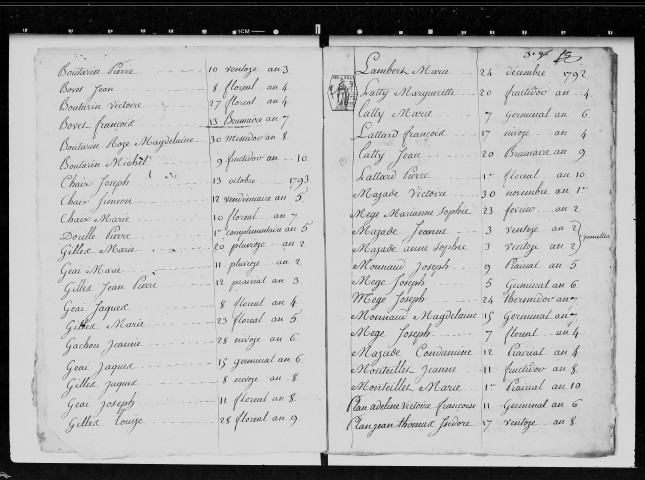 Boutarin Pierre 10 ventoze an 3
Bovet Jean 8 floreal an 4
Boutarin victoire 27 floreal an 4
Bovet françois 13 Brumaire an 7
Boutarin Roze Magdelaine 30 Messidor an 8
Boutarin Michel 9 fructidor an 10
Chaix Joseph 13 octobre 1793
Chaix Simeon 12 vendemiaire an 5
Chaix Marie 10 floreal an 7
Doville Pierre 1er complimentaire an 5
Gilles Marie 20 pluvioge an 2
Geai Marie 11 pluvioge an 2
Gilles Jean Pierre 12 prairial an 3
Geai Jaques 8 floreal an 4
Gilles Marie 23 floreal an 5
Gachon Jeanne 28 nivoze an 6
Geai Jaques 15 germinal an 6
Gilles Jaques 8 nivoze an 8
Geai Joseph 11 floreal an 8
Gilles Louize 28 floreal an 9
Lambert Marie 24 décembre 1792
Latty Margueritte 20 fructidor an 4
Catty Marie 7 germinal an 6
Lattard françois 17 nivoze an 4
Catty Jean 20 Brumaire an 9
Lattard Pierre 1er floreal an 10
Mazade Victoire 30 novembre an 1er
Mege Marianne Sophie 23 fevrier an 2
Mazade Jeanne 3 ventoze an 2
Mazade anne Sophie 3 ventoze an 2 jumelles
Monnaud Joseph 9 Prairial an 5
Mege Joseph 5 Germinal an 6
Mege Joseph 24 thermidor an 7
Monnaud Magdelaine 15 Germinal an 7
Mege Joseph 7 floreal an 4
Mazade Condamine 12 Prairial an 4
Monteillet Jeanne 11 fructidor an 8
Monteillet Marie 1er Prairial an 10
Plan adeline Victoire françoise 11 Germinal an 6
Plan jean thomas Isidore 17 ventoze an 8